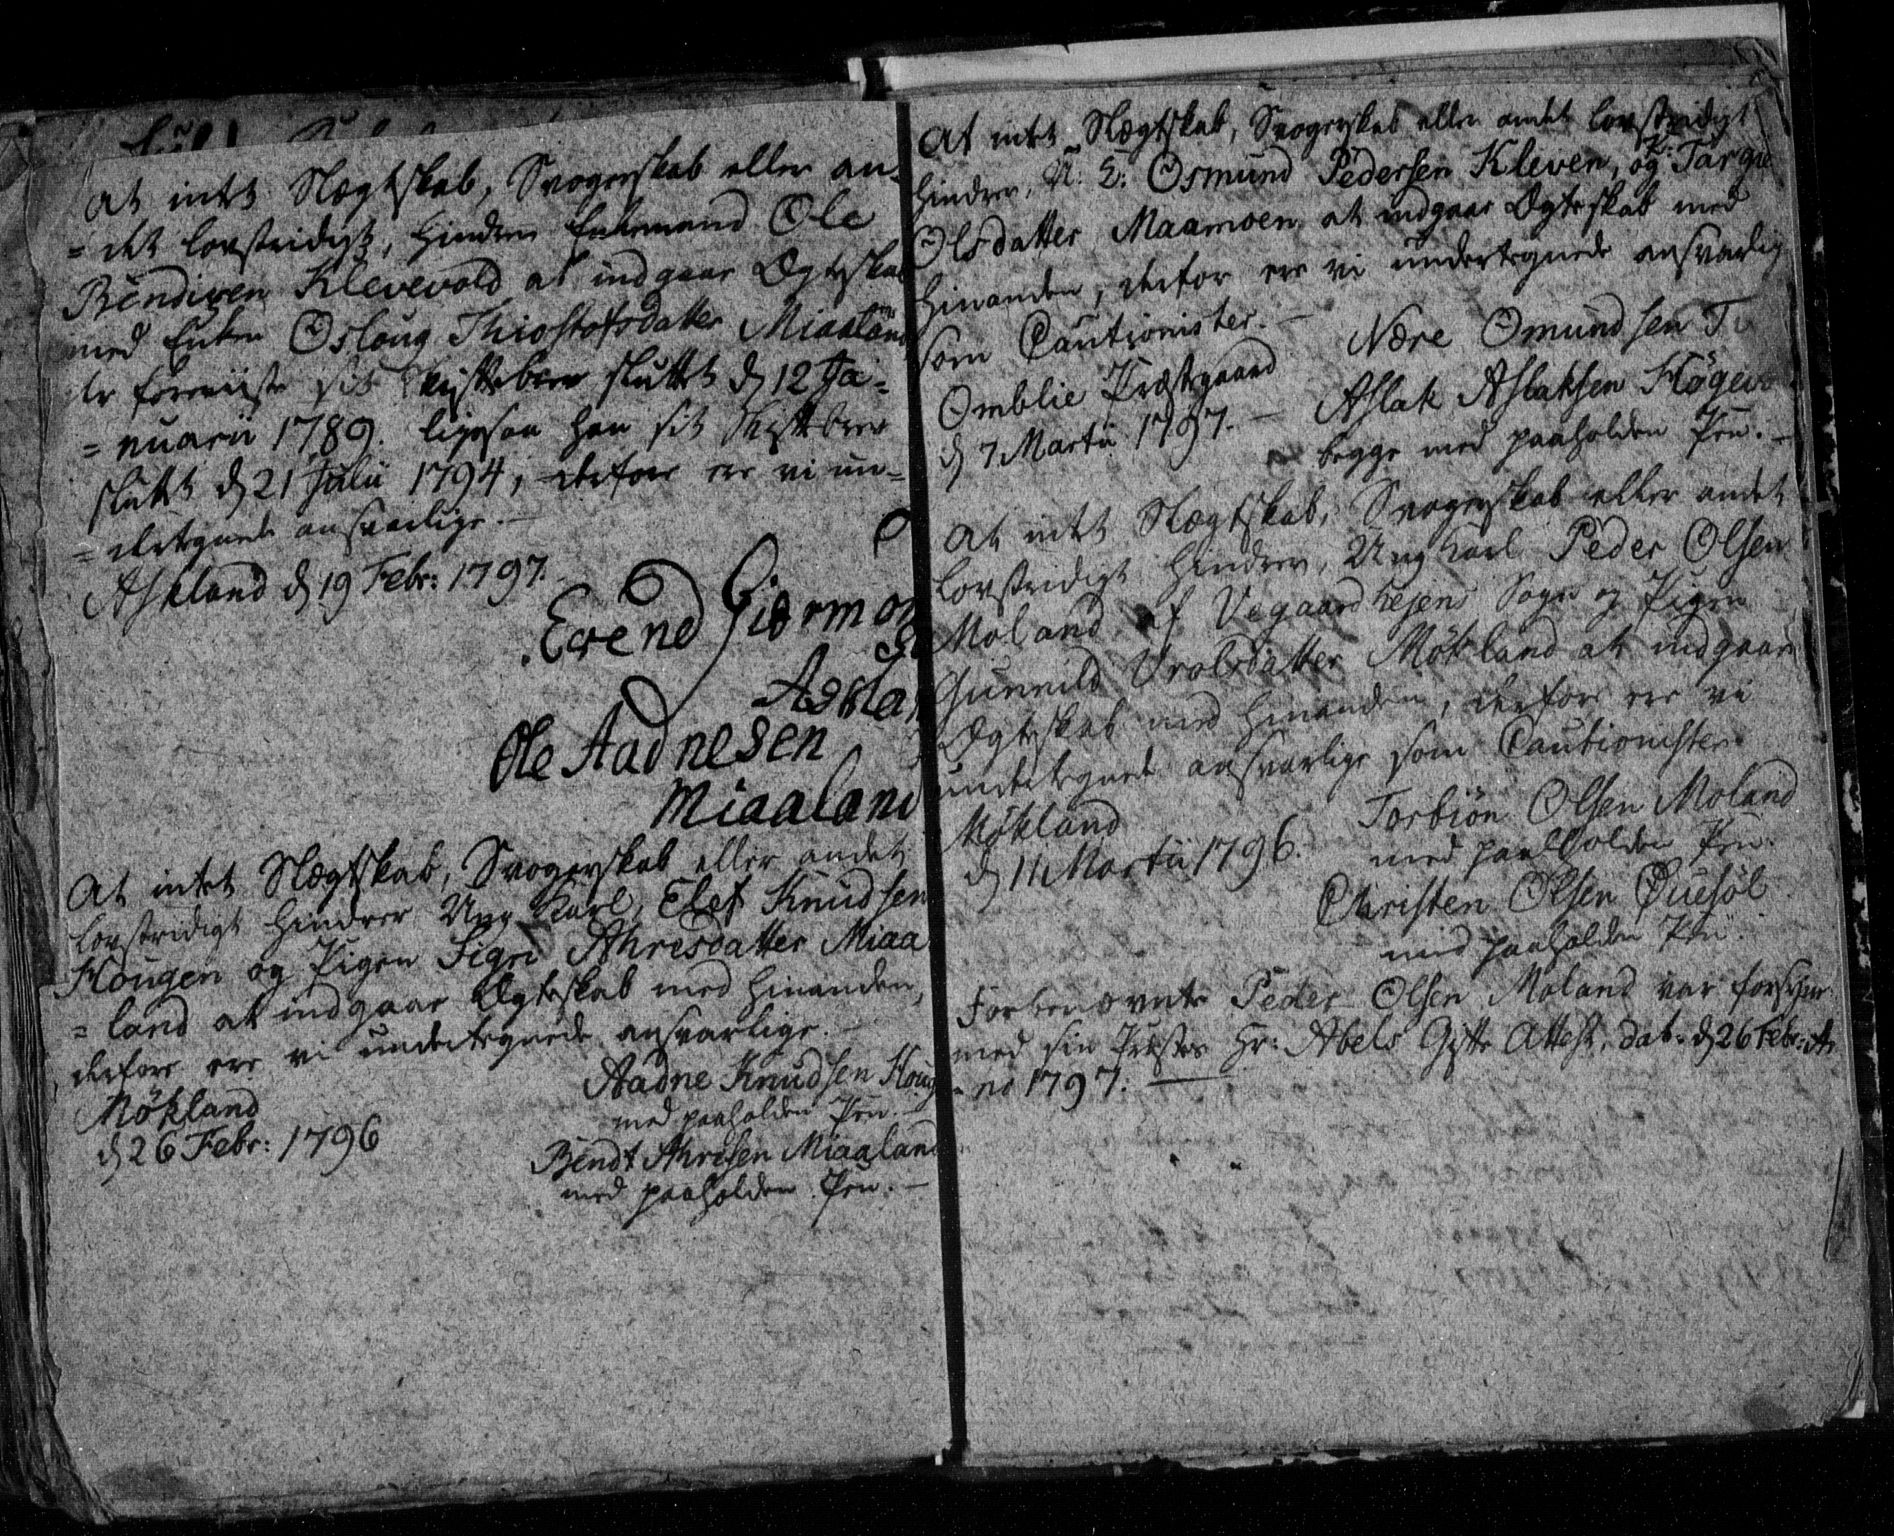 At intet Slægtskab, Svogerskab eller an-
= det lovstridigt, hindrer Enkemand Ole
Bendixen Klevevold at indgaae Ægteskab
med Enken Osloug Thiostofsdatter Miaaland
der foreviiste sit Skiftebrev sluttet d 12 Ja-
= nuarii 1789. ligesaa han sit Skiftebrev
slutt d 21 Julii 1794, derfore ere vi un-
= dertegnede ansvarlige.
Askland d 19 Febr: 1797.
Evend Giermon
Askla
Ole Aadnesen
Miaaland
At intet Slægtskab, Svogerskab eller andet
lovstridigt hindrer Ung Karl, Elef Knudsen
Hougen og Pigen Sigri Ahresdatter Miaa
= land at indgaae Ægteskab med hinanden,
derfore ere vi undertegnede ansvarlige.
Mökland
d 26 Febr: 1796
Aadne Knudsen Houg
med paaholden Pen.
Bendt Ahresen Miaaland
med paaholden Pen.
At intet Slægtskab, Svogerskab eller andet lovstridigt
hindrer, Osmund Pedersen Kleven, og P: Targie
Olsdatter Maamoen at indgaae Ægteskab med
hinanden, derfor ere vi undertegnede ansvarlig
som Cautionister.
Omblie Præstgaard
d 7 Martii 1797.
Nære Omundsen
Aslak Aslaksen Högevo
begge med paaholden Pen.
At intet Slægtskab, Svogerskab eller andet
lovstridigt hindrer, Ung Karl Peder Olsen
Moland af Vegaardhejens Sogn og Pigen
Gunnild Vrolsdatter Mökland at indgaae
Ægteskab med hinanden, derfore ere vi
undertegnede ansvarlige som Cautionister
Mökland
d 11 Martii 1796.
Torbiön Olsen Moland
med paaholden Pen.
Christen Olsen
med paaholden Pen.
Forbenævnte Peder Olsen Moland var forsynet
med sin Præstes Hr: Abels Gifte Attest, dat. d 26 Febr: A-
= no 1797.